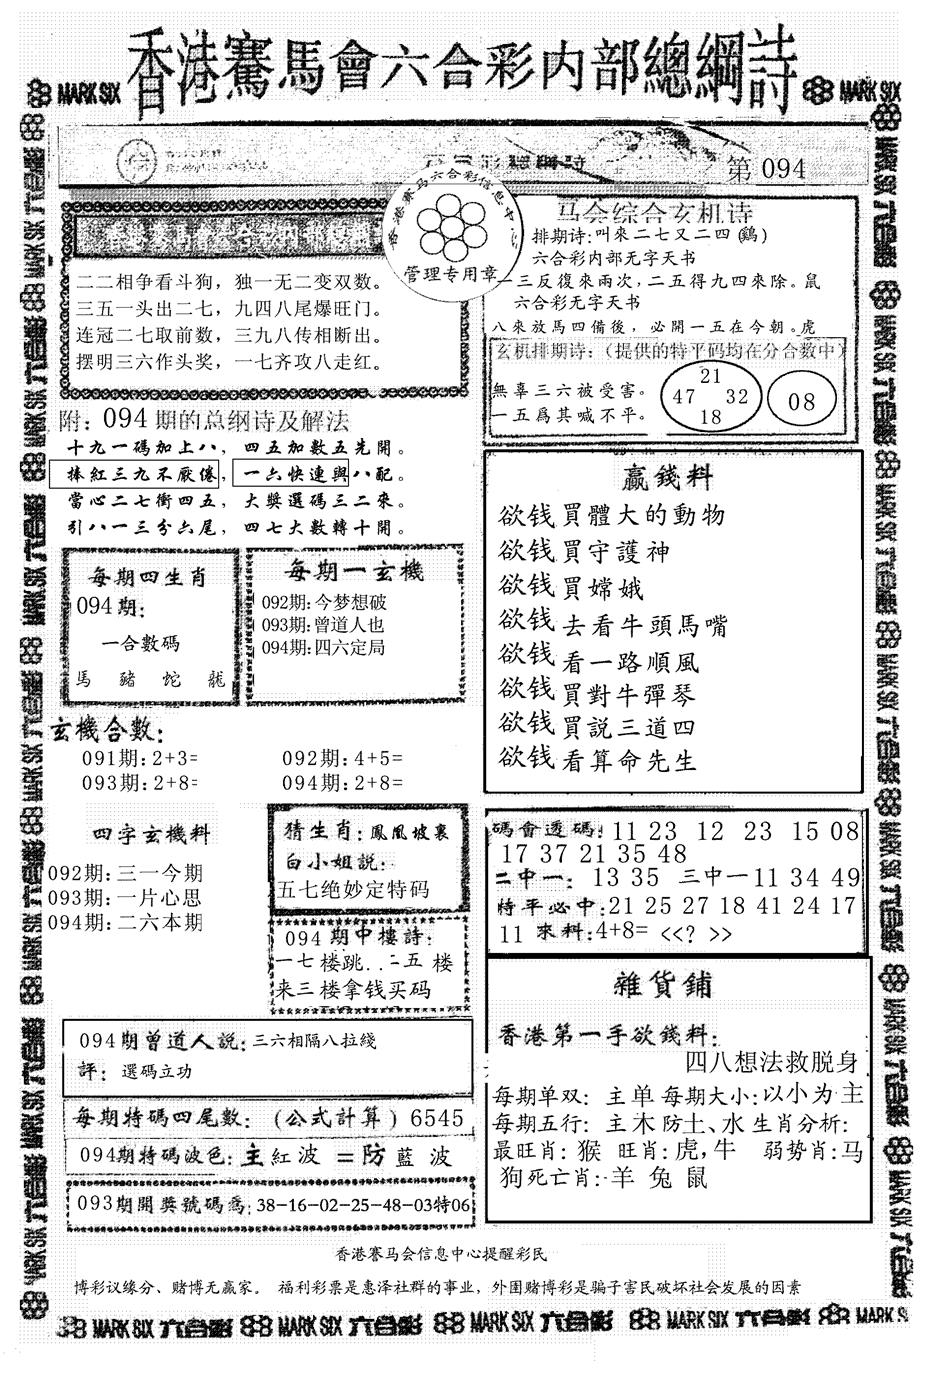 香港賽馬會六合彩内部總綱詩
MARK SIX
MARK SIX
第 094
香港赛马六合彩信息中心
管理专用章
二二相争看斗狗，独一无二变双数。
三五一头出二七，九四八尾爆旺门。
连冠二七取前数，三九八传相断出。
摆明三六作头奖，一七齐攻八走红。
马会综合玄机诗
排期诗:叫來二七又二四(鷄)
六合彩内部无字天书
一三反復來兩次,二五得九四來除。鼠
六合彩无字天书
八來放馬四備後，必開一五在今朝。虎
玄机排期诗:（提供的特平码均在分合数中）
無辜三六被受害。
一五爲其喊不平。
21
47 32
18
08
附: 094期的总纲诗及解法
十九一碼加上八，四五加數五先開。
捧紅三九不厭倦，一六快連與八配。
當心二七衝四五，大獎選碼三二來。
引八一三分六尾，四七大數轉十開。
每期四生肖
094期:
一合數碼
馬 豬 蛇 龍
每期一玄機
092期:今梦想破
093期:曾道人也
094期:四六定局
赢錢料
欲钱買體大的動物
欲钱買守護神
欲钱買嫦娥
欲钱去看牛頭馬嘴
欲钱看一路順風
欲钱買對牛彈琴
欲钱買説三道四
欲钱看算命先生
玄機合數:
091期:2+3= 092期:4+5=
093期:2+8= 094期:2+8=
四字玄機料
092期:三一今期
093期:一片心思
094期:二六本期
猜生肖:鳳凰坡裏
白小姐説:
五七绝妙定特码
094期中樓詩:
一七楼跳..二五 楼
来三楼拿钱买码
碼會透碼:11 23 12 23 15 08
17 37 21 35 48
二中一: 13 35 三中一11 34 49
特平必中:21 25 27 18 41 24 17
11 來料:4+8= <<? >>
雜貨鋪
香港第一手欲錢料:
四八想法救脱身
每期单双: 主单 每期大小:以小为主
每期五行: 主木防土、水 生肖分析:
最旺肖: 猴 旺肖:虎,牛 弱势肖:马
狗 死亡肖:羊 兔 鼠
094期曾道人説:三六相隔八拉綫
評: 選碼立功
每期特碼四尾數:(公式計算)6545
094期特碼波色:主紅波 =防藍波
093期開獎號碼爲:38-16-02-25-48-03特06
香港賽马会信息中心提醒彩民
博彩议缘分、赌博无赢家。 福利彩票是惠泽社群的事业，外围赌博彩是骗子害民破坏社会发展的因素
MARK SIX 六合彩 MARK SIX 六合彩 MARK SIX 六合彩 MARK SIX 六合彩 MARK SIX